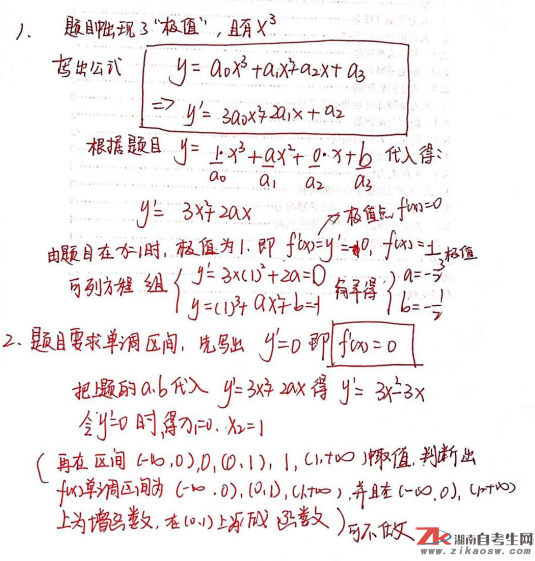 1、 题目中出现了“极值”，且有X³
写出公式 y = a₀x³+a₁x²+a₂x+a₃
=> y' = 3a₀x²+2a₁x+a₂
根据题目 y = 1·x³+ax²+0·x+b 代入得：
a₀ a₁ a₂ a₃
y' = 3x²+2ax
极值点 f'(x)=0
由题目在x=1时，极值为1.即 f'(x)=y'=0, f(x)=1 极值
可列方程组 { y'=3×(1)²+2a=0 解得 { a=-3/2
y=(1)³+ax²+b=1 b=-1/2
2、题目要求单调区间，先写出 y'=0 即 f'(x)=0
把上题的a.b代入 y'=3x²+2ax得 y'=3x²-3x
令y'=0时,得x₁=0. x₂=1
(再在区间(-∞,0),0,(0,1),1,(1,+∞)中取值,判断出
f(x)单调区间为(-∞,0),(0,1),(1,+∞),并且在(-∞,0),(1,+∞)
上为增函数,在(0,1)上为减函数)可不做
ZK 湖南自考生网
www.zikaosw.com